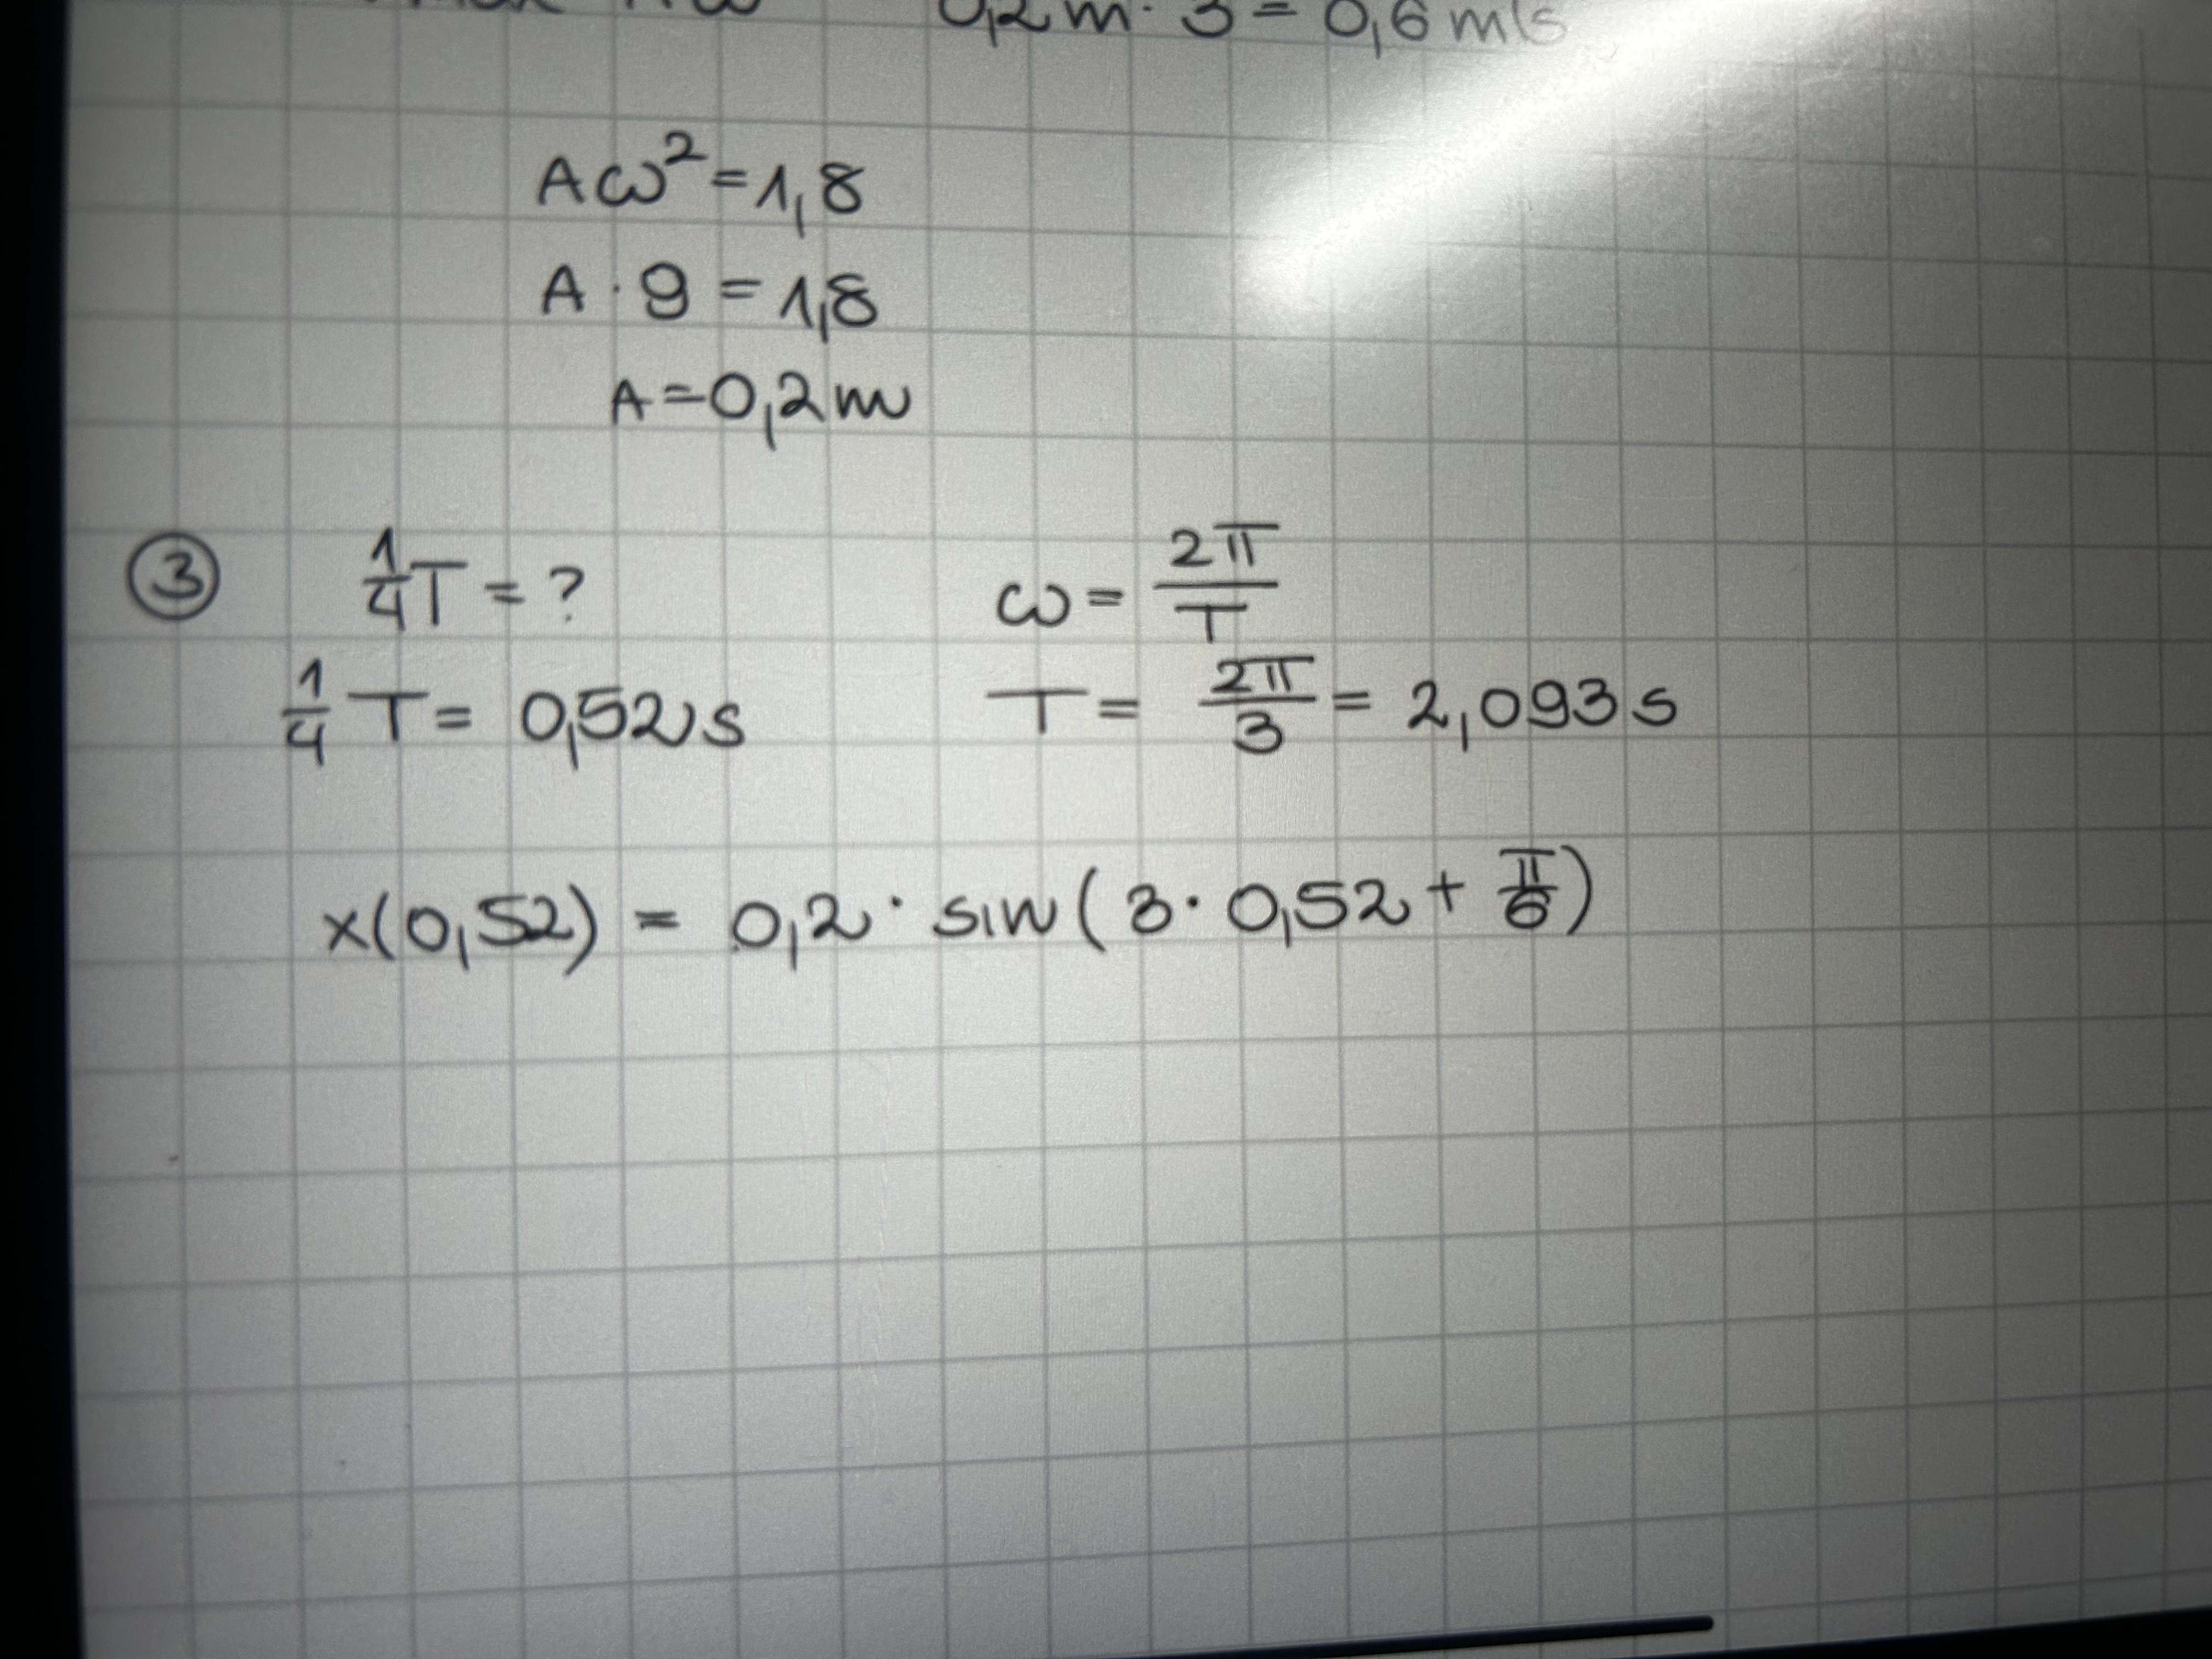 0,2m · 3 = 0,6 m/s
Aω²=1,8
A · 9 = 1,8
A=0,2m
③ 1/4 T = ? ω = 2π/T
1/4 T = 0,52s T = 2π/3 = 2,093s
x(0,52) = 0,2 · sin(3 · 0,52 + π/6)